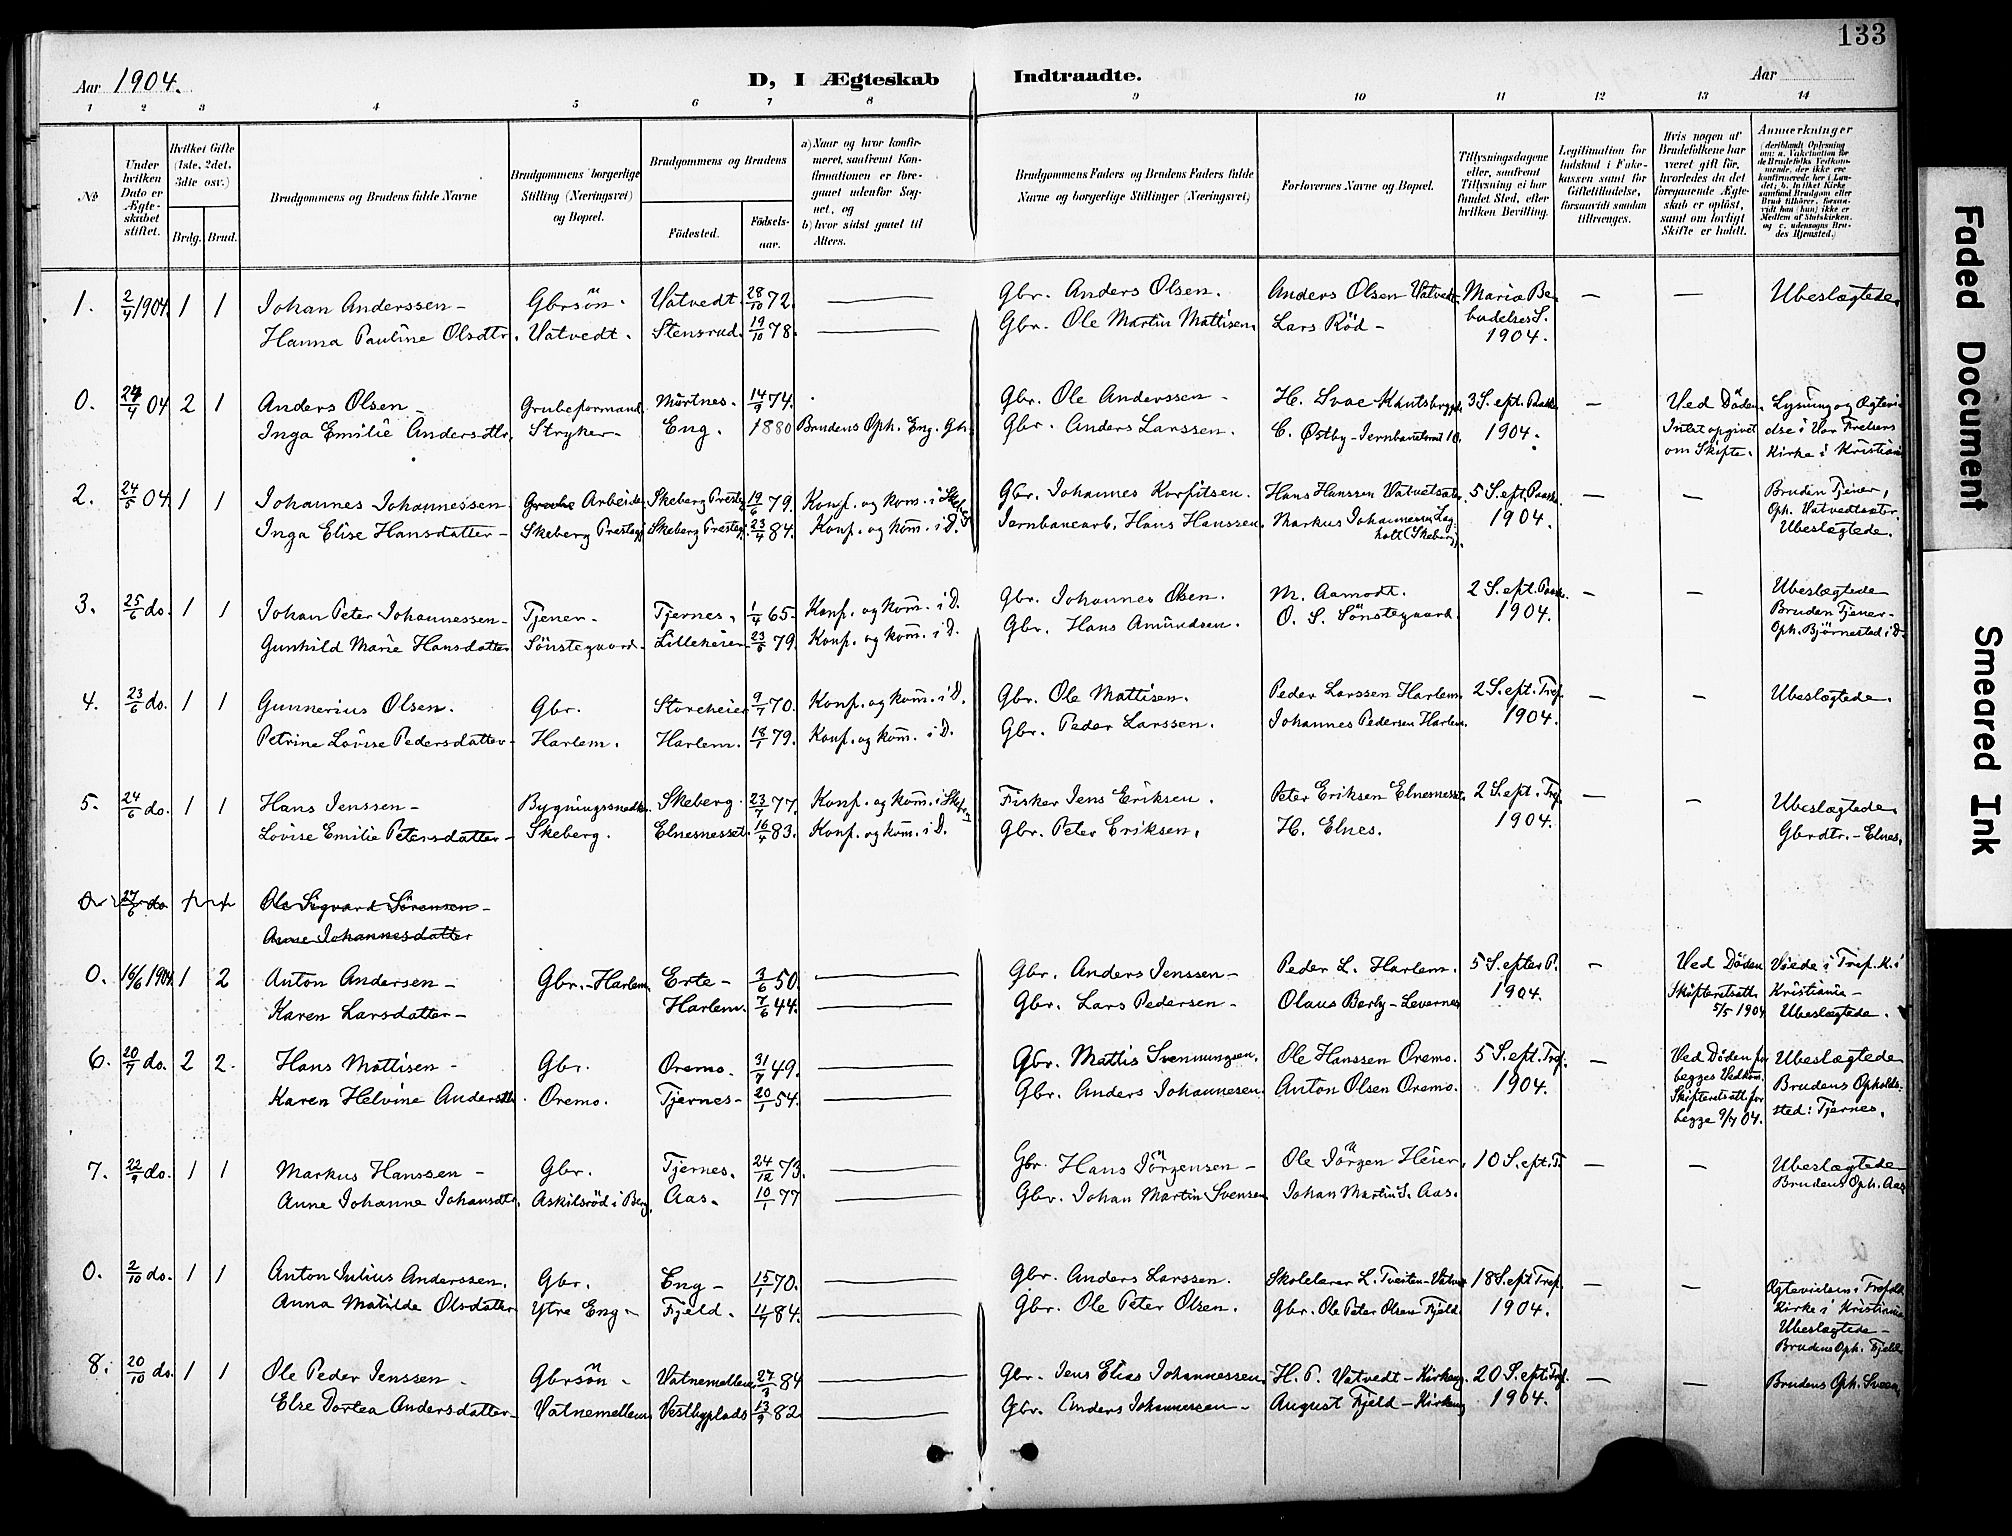 133
Aar 1904.
D, I Ægteskab Indtraadte.
Aar
1 2 3 4 5 6 7 8 9 10 11 12 13 14
No.
Under hvilken Dato er Ægteskabet stiftet.
Hvilket Gifte (1ste, 2det, 3die osv.)
Brdg. Brud.
Brudgommens og Brudens fulde Navne
Brudgommens borgerlige Stilling (Næringsvei) og Bopæl.
Brudgommens og Brudens
Födested. Födselsaar.
a) Naar og hvor konfirmeret, saafremt Konfirmationen er foregaaet udenfor Sognet, og
b) hvor sidst gaaet til Alters.
Brudgommens Faders og Brudens Faders fulde Navne og borgerlige Stillinger (Næringsvei)
Forlovernes Navne og Bopæl.
Tillysningsdagene eller, saafremt Tillysning ei har fundet Sted, efter hvilken Bevilling.
Legitimation for Indskud i Enkekassen samt for Giftetilladelse, forsaavidt saadan tiltrænges.
Hvis nogen af Brudefolkene har været gift för, hvorledes da det foregaaende Ægteskab er oplöst, samt om lovligt Skifte er holdt.
Anmærkninger
1. 2/4 1904. 1 1 Johan Anderssen - Gbrsön. Vatvedt. 28/10 72. Gbr. Anders Olsen. Anders Olsen Vatvedt. Maria Be- — — Ubeslægtede
Hanna Pauline Olsdtr. Vatvedt. Stensrud. 19/10 78. Gbr. Ole Martin Mattisen. Lars Röd - budelses S. 1904.
0. 24/4 04 2 1 Anders Olsen - Grubeformand. Mörtnes. 14/9 74. Gbr. Ole Anderssen - 3 S. ept. Paaske — Ved Döden. Lysning og Ægtevi-
Inga Emilie Andersdtr. Stryker - Eng. 1880 Brudens Oph. Eng. Gbr. Anders Larssen. C. Østby - 1904. Intet opgivet om Skifte. else i Vor Frelsers Kirke i Kristiania
2. 24/5 04 1 1 Johannes Johannessen. Grube Arbeider Skeberg Prestegj. 19/6 79. Konf. og kom. i Skeberg Gbr. Johannes Korfitsen. Hans Hanssen Vatvetsæter. 5 S. ept. Paaske — — Bruden Tjener,
Inga Elise Hansdatter - Skeberg Prestegj. Skeberg Prestegj. 23/4 84. Konf. og kom. i D. Jernbanearb. Hans Hanssen. Markus Johannessen holt (Skeberg). 1904. Oph. Vatvedtsæter. Ubeslægtede.
3. 25/6 do. 1 1 Johan Peter Johannessen - Tjener - Tjernes. 1/4 65. Konf. og kom. i D. Gbr. Johannes Olsen. M. Aamodt. 2 S. ept. Paaske — — Ubeslægtede
Gunhild Marie Hansdatter Sönstegaard. Lilleheier 23/6 79. Konf. og kom. i D. Gbr. Hans Amundsen. O. S. Sönstegaard. 1904. Bruden Tjener - Oph. Björnestad i D.
4. 23/6 do. 1 1 Gunnerius Olsen. Gbr. Storeheier 9/7 70. Konf. og kom. i D. Gbr. Ole Mattisen. Peder Larssen Harlem. 2 S. ept. Tref. — — Ubeslægtede.
Petrine Lovise Pedersdatter - Harlem. Harlem. 18/1 79. Konf. og kom. i D. Gbr. Peder Larssen. Johannes Pedersen Harlem. 1904.
5. 24/6 do. 1 1 Hans Jenssen - Bygningssnedker Skeberg. 23/7 77. Konf. og kom. i Skeberg Fisker Jens Eriksen. Peter Eriksen Elnesnesset. 2 S. ept. Tref. — — Ubeslægtede
Lovise Emilie Petersdatter - Skeberg. Elnesnesset. 16/4 83. Konf. og kom. i D. Gbr. Peter Eriksen. H. Elnes. 1904. Gbrdtr. - Elnes.
0 27/6 do 1 1 Ole Sigvard Sörensen -
Anne Johannesdatter
0. 16/6 1904 1 2 Anton Andersen - Gbr. - Harlem. Erte - 3/6 50. Gbr. Anders Jenssen - Peder L. Harlem. 5 S. efter P. — Ved Döden Viede i Tref. K. i
Karen Larsdatter - Harlem. 7/6 44. Gbr. Lars Pedersen - Olaus Berby - Levernes 1904. Skifteretsatt. 5/5 1904 Kristiania - Ubeslægtede.
6. 20/7 do. 2 2. Hans Mattisen - Gbr. Oremo. 31/7 49. Gbr. Mattis Svenningsen. Ole Hanssen Oremo. 5 S. ept. Tref. — Ved Döden for Ubeslægtede
Karen Helvine Andersdtr. Oremo. Tjernes - 20/1 54. Gbr. Anders Johannesen. Anton Olsen Oremo. 1904. begges Vedkom. Skifteretsatt for begge 9/7 04. Brudens Opholdssted: Tjernes.
7. 22/9 do. 1 1 Markus Hanssen - Gbr. Tjernes. 24/12 73. Gbr. Hans Jörgensen - Ole Jörgen Heier. 10 S. ept. T. — — Ubeslægtede
Anne Johanne Johansdtr. Askilsröd i Berg. Aas. 10/1 77 Gbr. Johan Martin Svensen. Johan Martin S. Aas. Brudens Oph. Aas
0. 2/10 do. 1 1 Anton Julius Anderssen. Gbr. Eng - 15/1 70. Gbr. Anders Larssen. Skolelærer L. Tveiten - Vatvet 18 S. ept. Tref. — — Ægtevielsen i Trefold.
Anna Matilde Olsdatter Ytre Eng - Fjeld. 11/4 84. Gbr. Ole Peter Olsen. Gbr. Ole Peter Olsen Fjeld. 1904. Kirke i Kristiania Ubeslægtede - Brudens Oph. Fjeld
8. 20/10 do. 1 1 Ole Peder Jenssen - Gbrsön - Vatnemellem 27/3 84 Gbr. Jens Elias Johannessen. H. P. Vatvedt - Kirkeng. 20 S. ept. Tref. — — Brudens Oph. Sveen
Else Dortea Andersdatter - Vatnemellem Vestbyplads 13/9 82 Gbr. Anders Johannessen - August Fjeld - Kirkeng 1904.
Faded Document
Smeared Ink